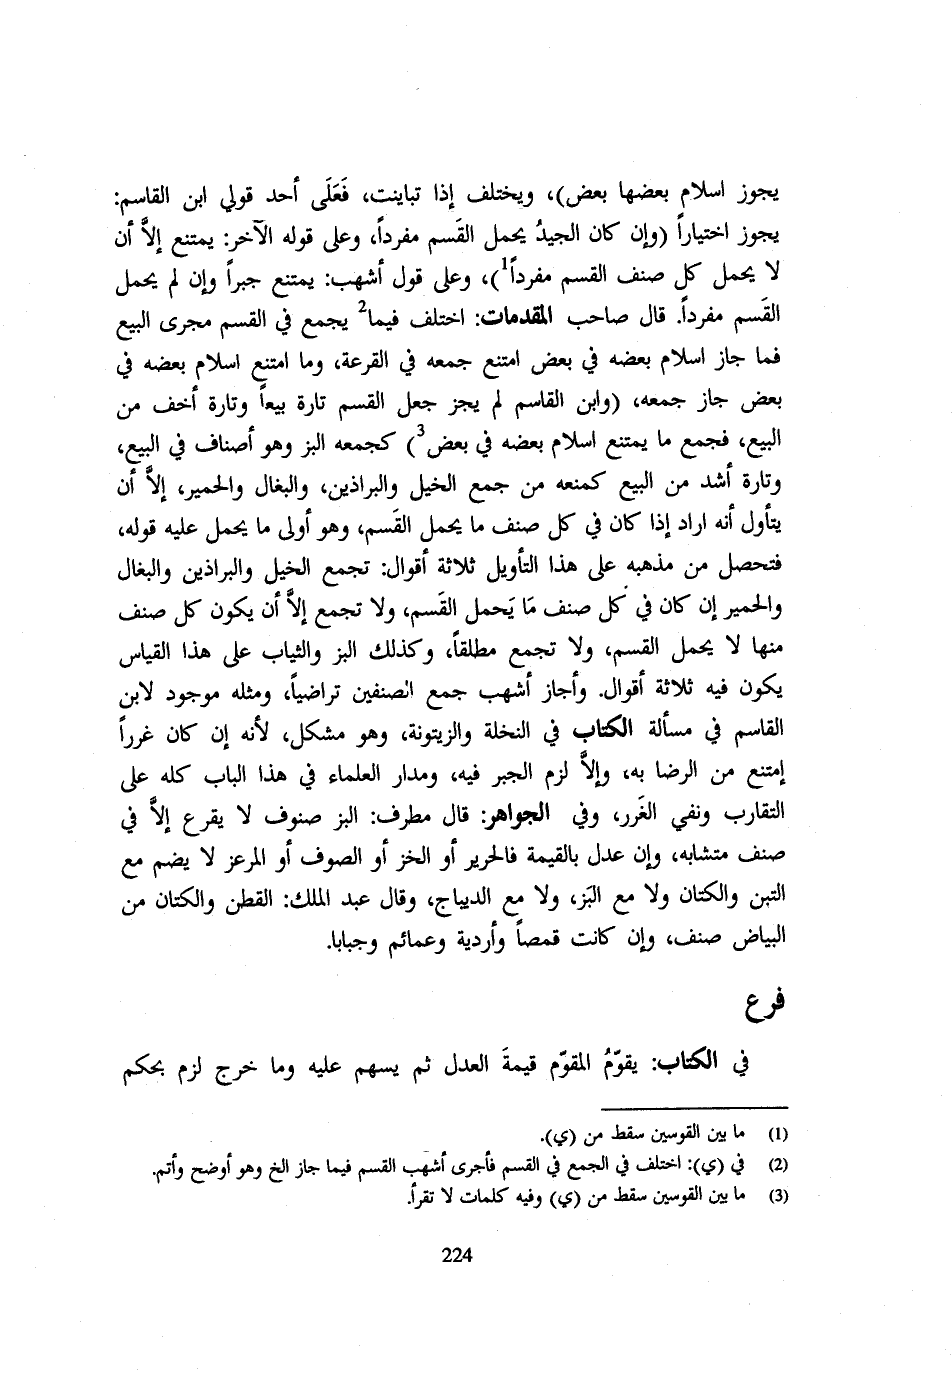 يجوز اسلام بعضها بعض)، ويختلف إذا تباينت، فَعَلَى أحد قولي ابن القاسم:
يجوز اختياراً (وإن كان الجيدُ يحمل القَسم مفرداً، وعلى قوله الآخر: يمتنع إلاَّ أن
لا يحمل كل صنف القسم مفرداً1)، وعلى قول أشهب: يمتنع جبراً وإن لم يحمل
القَسم مفرداً. قال صاحب المقدمات: اختلف فيما2 يجمع في القسم مجرى البيع
فما جاز اسلام بعضه في بعض امتنع جمعه في القرعة، وما امتنع اسلام بعضه في
بعض جاز جمعه، (وابن القاسم لم يجز جعل القسم تارة بيعاً وتارة أخف من
البيع، فجمع ما يمتنع اسلام بعضه في بعض3) كجمعه البز وهو أصناف في البيع،
وتارة أشد من البيع كمنعه من جمع الخيل والبراذين، والبغال والحمير، إلاَّ أن
يتأول أنه اراد إذا كان في كل صنف ما يحمل القَسم، وهو أولى ما يحمل عليه قوله،
فتحصل من مذهبه على هذا التأويل ثلاثة أقوال: تجمع الخيل والبراذين والبغال
والحمير إن كان في كل صنف مَا يَحمل القَسم، ولا تجمع إلاَّ أن يكون كل صنف
منها لا يحمل القسم، ولا تجمع مطلقاً، وكذلك البز والثياب على هذا القياس
يكون فيه ثلاثة أقوال. وأجاز أشهب جمع الصنفين تراضياً، ومثله موجود لابن
القاسم في مسألة الكتاب في النخلة والزيتونة، وهو مشكل، لأنه إن كان غرراً
إمتنع من الرضا به، وإلاَّ لزم الجبر فيه، ومدار العلماء في هذا الباب كله على
التقارب ونفي الغَرر، وفي الجواهر: قال مطرف: البز صنوف لا يقرع إلاَّ في
صنف متشابه، وإن عدل بالقيمة فالحرير أو الخز أو الصوف أو المرعز لا يضم مع
التبن والكتان ولا مع البَز، ولا مع الديباج، وقال عبد الملك: القطن والكتان من
البياض صنف، وإن كانت قمصاً وأردية وعمائم وجبابا.
فرع
في الكتاب: يقوّمُ المقوّم قيمةَ العدل ثم يسهم عليه وما خرج لزم بحكم
(1) ما بين القوسين سقط من (ي).
(2) في (ي): اختلف في الجمع في القسم فأجرى أشهب القسم فيما جاز الخ وهو أوضح وأتم.
(3) ما بين القوسين سقط من (ي) وفيه كلمات لا تقرأ.
224